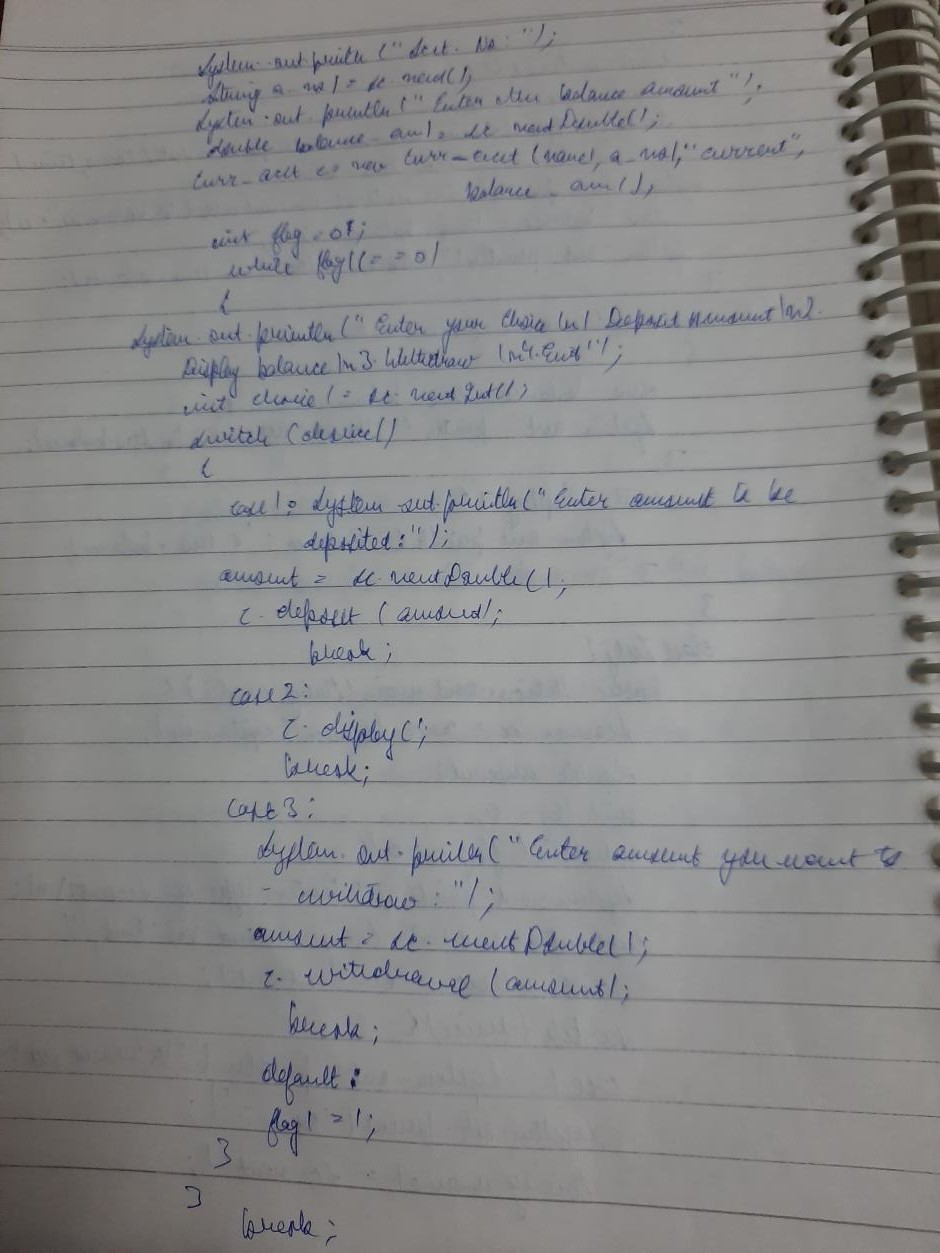 System.out.println("Acct. No: ");
String a_no1 = sc.next();
System.out.println("Enter the balance amount");
double balance_am1 = sc.nextDouble();
Curr_acct c = new Curr_acct (name1, a_no1, "current",
balance_am1);
int flag = 01;
while flag1(== 0)
{
System.out.println("Enter your choice \n1 Deposit Amount \n2.
Display balance \n3. Withdraw \n4. Exit");
int choice1 = sc.nextInt();
switch (choice1)
{
case 1: System.out.println("Enter amount to be
deposited: ");
amount = sc.nextDouble();
c.deposit (amount);
break;
case 2:
c.display();
break;
case 3:
System.out.println("Enter amount you want to
- withdraw : ");
amount = sc.nextDouble();
c.withdrawal (amount);
break;
default:
flag1 = 1;
}
}
break;